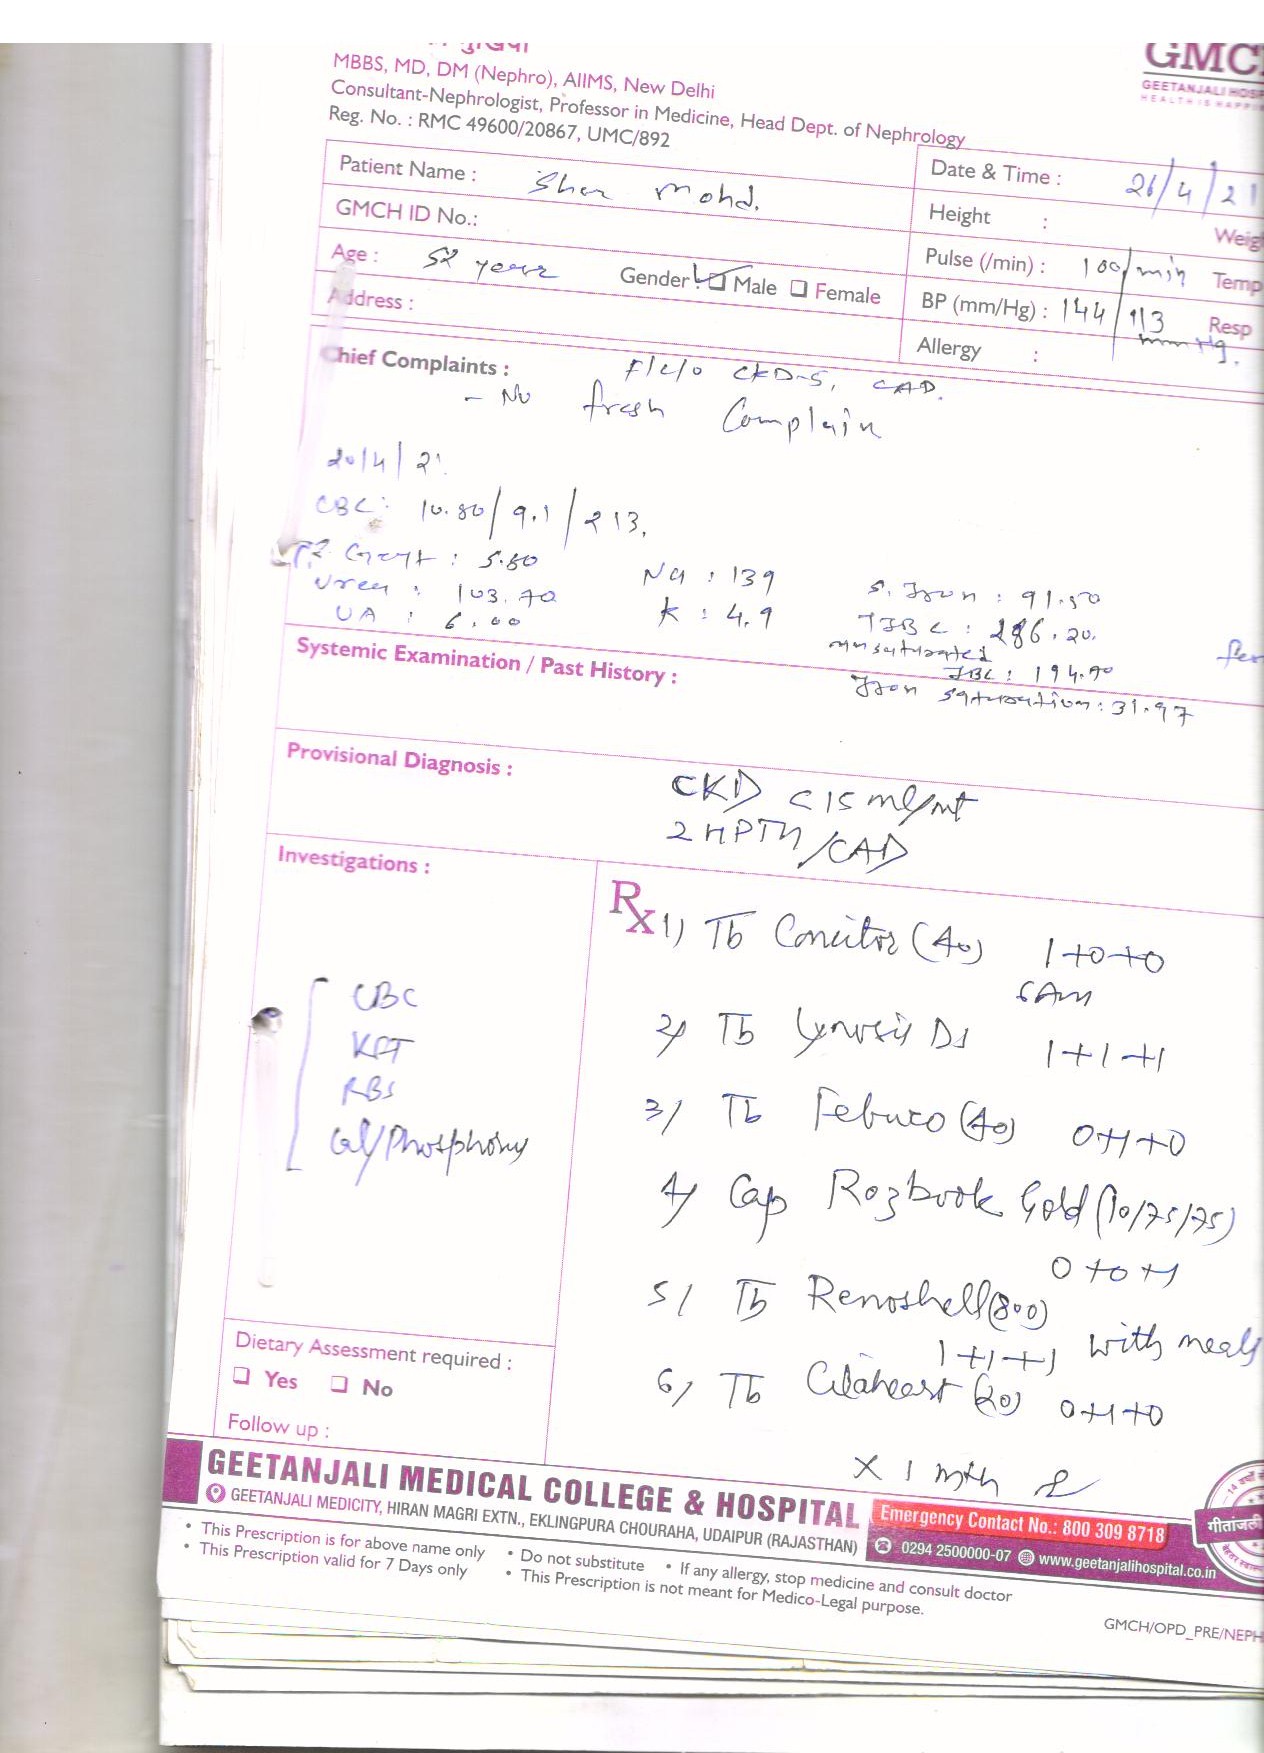 MBBS, MD, DM (Nephro), AIIMS, New Delhi
Consultant-Nephrologist, Professor in Medicine, Head Dept. of Nephrology
Reg. No. : RMC 49600/20867, UMC/892
GMC
GEETANJALI HOSP
HEALTH IS HAPPI
Patient Name : Sher Mohd.
Date & Time : 26/4/21
GMCH ID No.:
Height : Weig
Age : 52 year Gender : Male Female
Pulse (/min) : 100/min Temp
Address :
BP (mm/Hg) : 144/113 mmHg. Resp
Allergy :
Chief Complaints : F/c/o CKD-5, CAD.
- No fresh Complain
20/4/21
CBC: 10.80/9.1/213,
: 5.80 Na : 139 S. Iron : 91.50
Urea : 103.70 K : 4.9 TIBC : 286.20.
UA : 6.00 unsaturated
IBC : 194.70
Iron saturation : 31.97
Systemic Examination / Past History :
Provisional Diagnosis : CKD <15 ml/mt
2 HPTH/CAD
Investigations :
CBC
KFT
RBS
Cal/Phosphorus
Rx 1) Tb Concitor (40) 1+0+0
6Am
2) Tb DS 1+1+1
3) Tb Febuco (40) 0+1+0
4) Cap Rozbook Gold (10/75/75)
0+0+1
5) Tb Renoshell (800)
1+1+1 with meals
6) Tb Cilaheart (20) 0+1+0
x 1 mth
Dietary Assessment required :
Yes No
Follow up :
GEETANJALI MEDICAL COLLEGE & HOSPITAL
GEETANJALI MEDICITY, HIRAN MAGRI EXTN., EKLINGPURA CHOURAHA, UDAIPUR (RAJASTHAN)
Emergency Contact No.: 800 309 8718
0294 2500000-07 www.geetanjalihospital.co.in
गीतांजली
• This Prescription is for above name only • Do not substitute • If any allergy, stop medicine and consult doctor
• This Prescription valid for 7 Days only • This Prescription is not meant for Medico-Legal purpose.
GMCH/OPD_PRE/NEPH